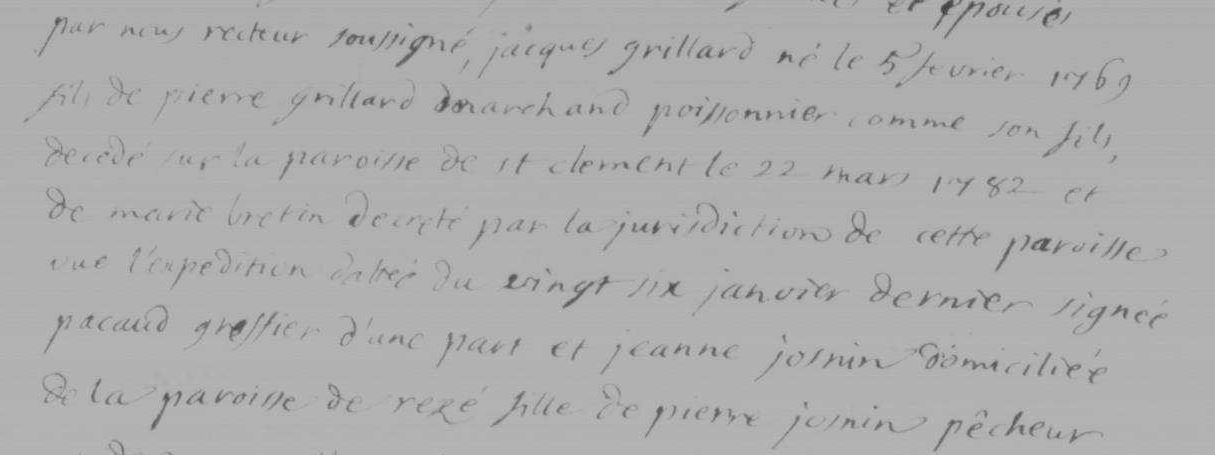 et épousés
par nous recteur soussigné, jacques grillard né le 5 fevrier 1769
fils de pierre grillard marchand poissonnier comme son fils,
decedé sur la paroisse de st clement le 22 mars 1782 et
de marie bretin decreté par la jurisdiction de cette paroisse
vue l'expedition dattée du vingt six janvier dernier signée
pacaud greffier d'une part et jeanne josnin domiciliée
de la paroisse de rezé fille de pierre josnin pêcheur